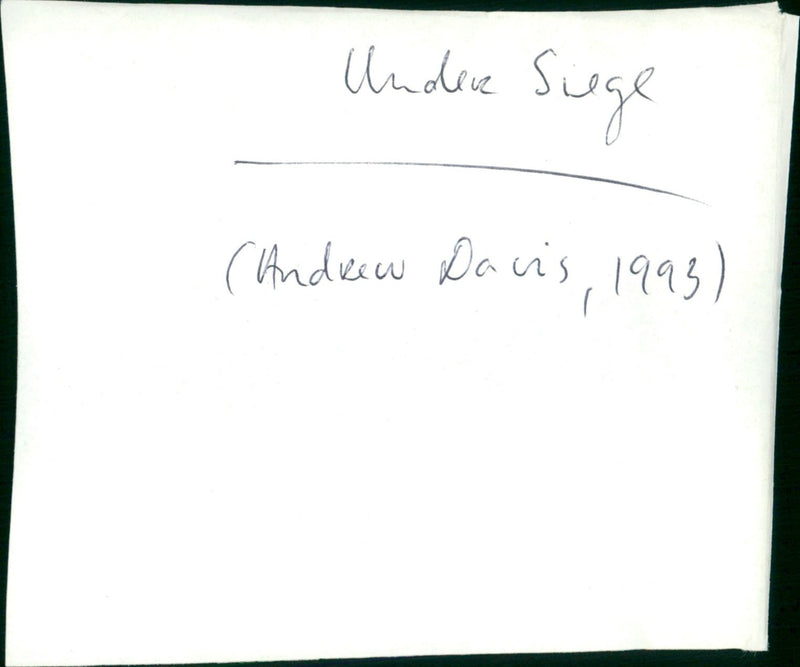 Under Siege
(Andrew Davis, 1993)